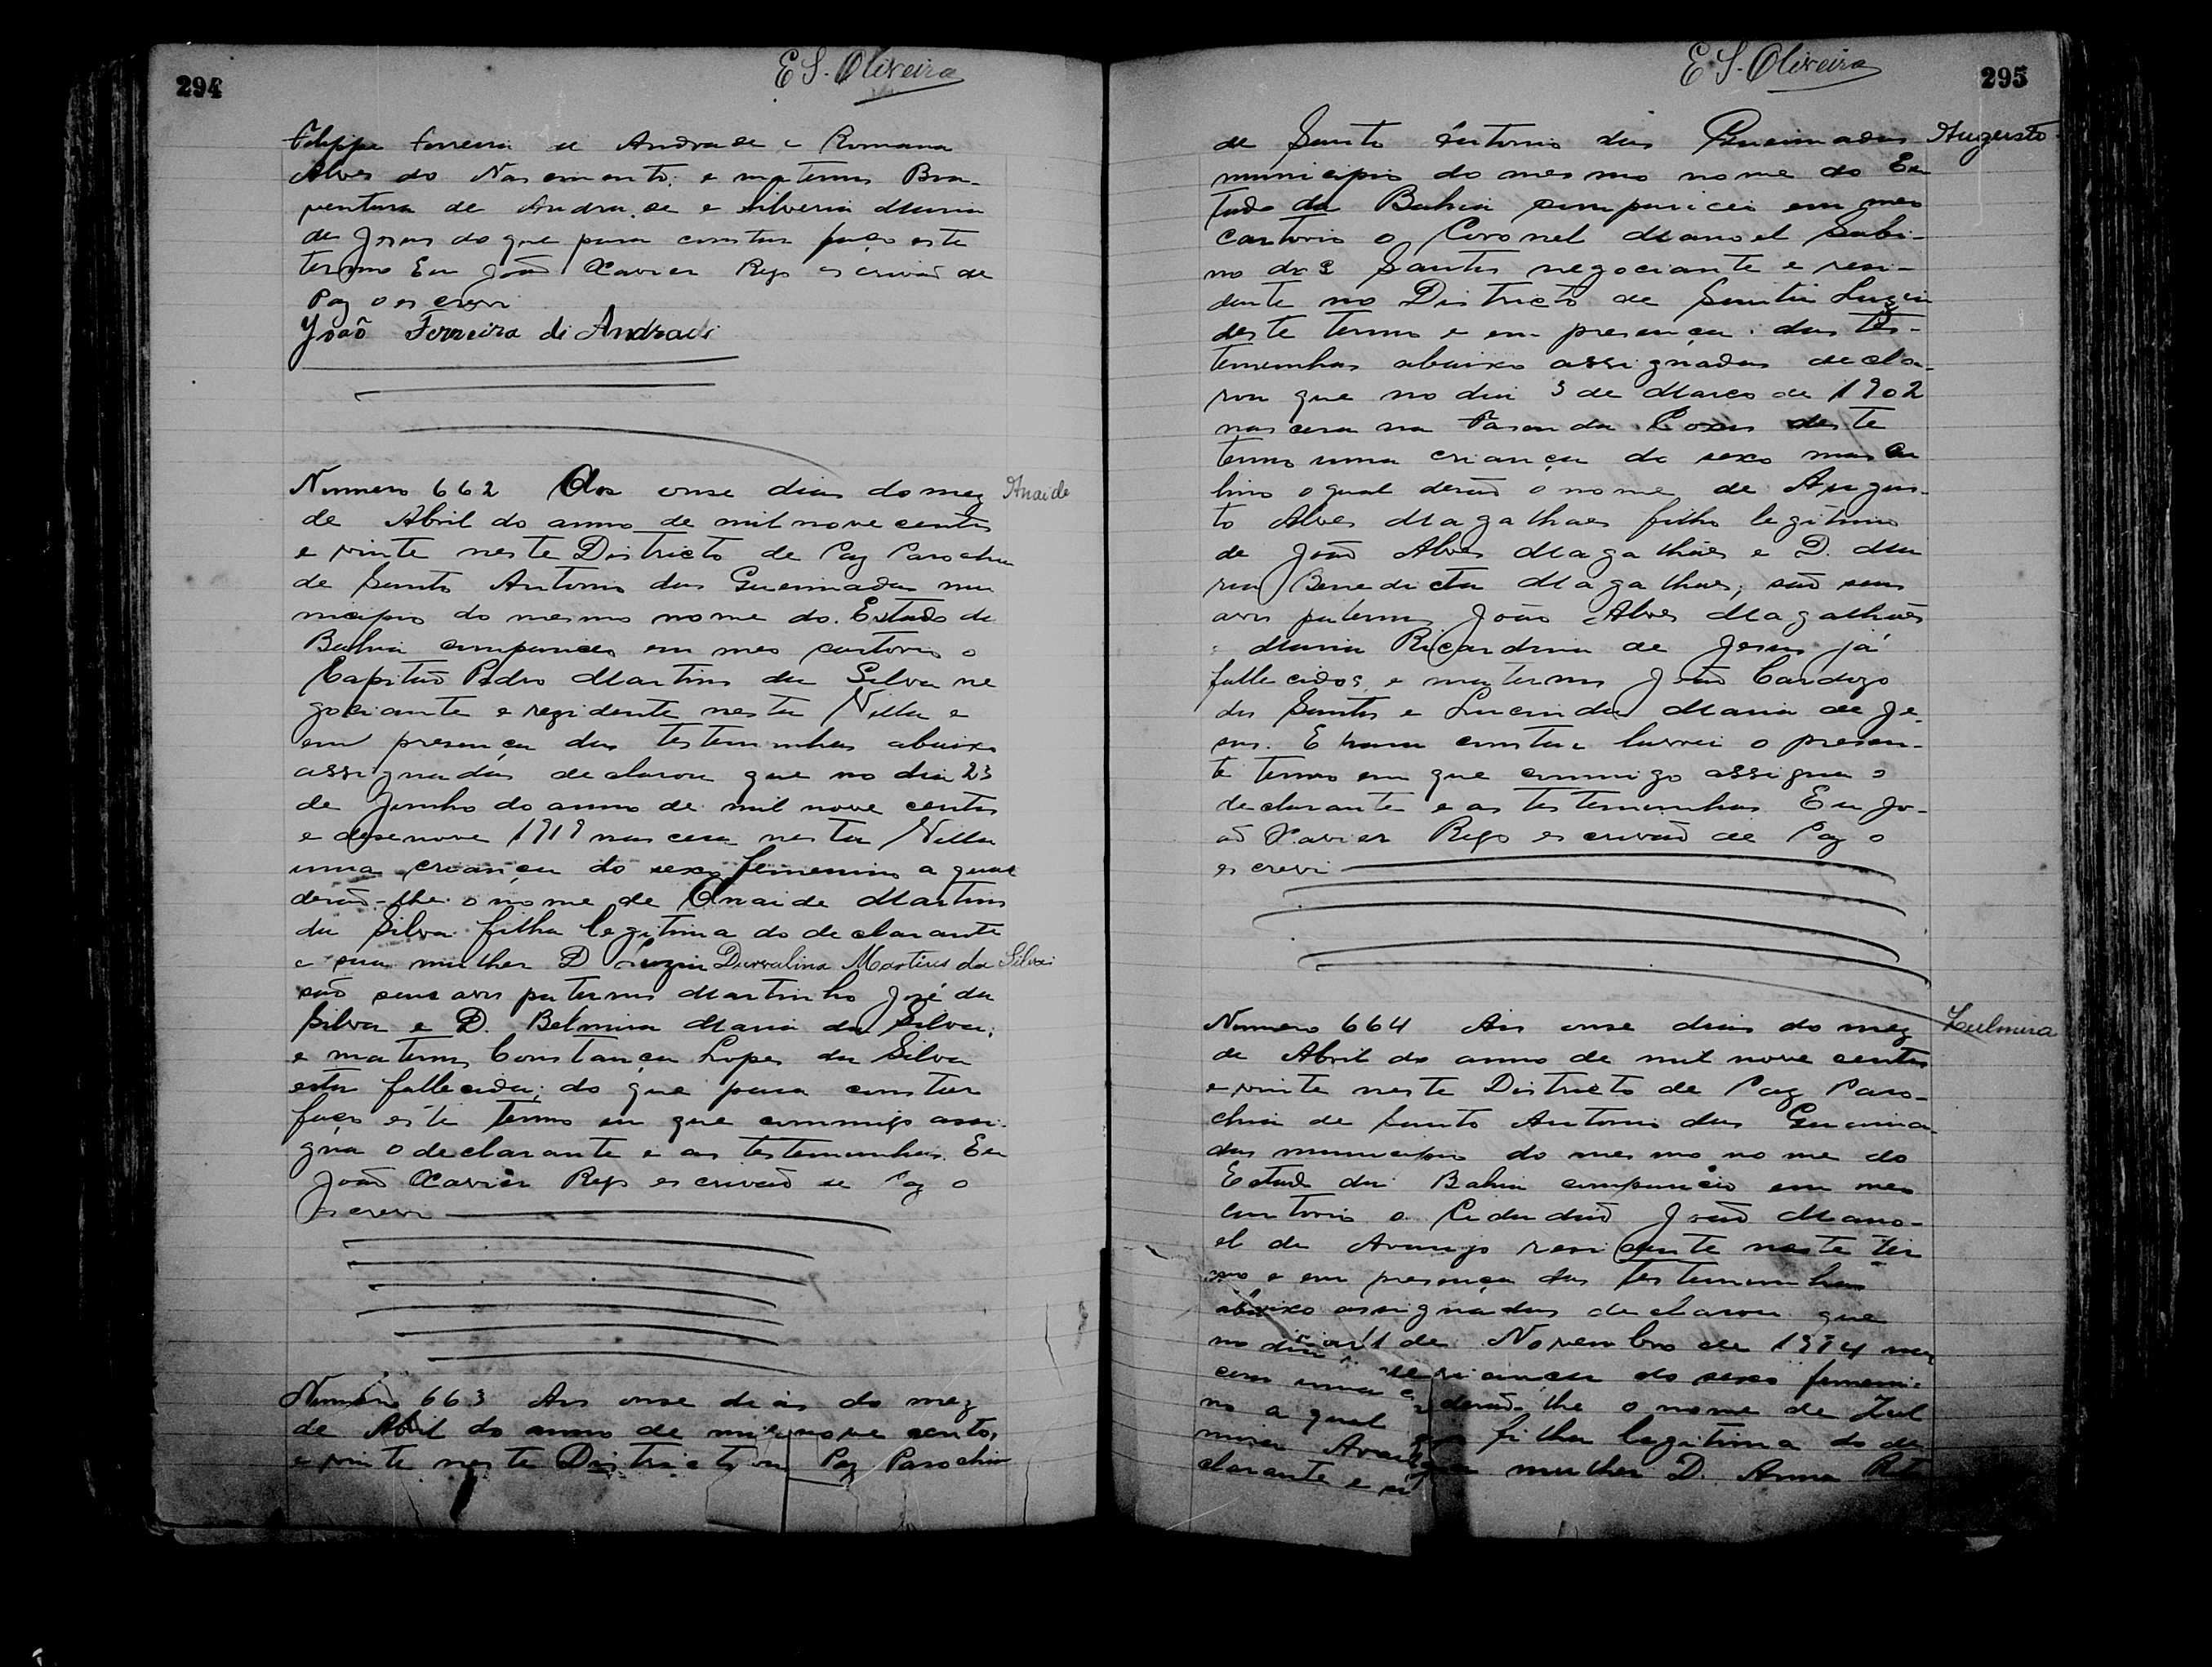 294
E S. Oliveira
Felippe Ferreira de Andrade e Romana
Alves do Nascimento; e maternos Boa-
ventura de Andrade e Silveria Maria
de Jesus do que para constar faço este
termo Eu João Xavier Rego escrivão de
Paz o escrevi
João Ferreira di Andradi
Numero 662 Aos onse dias do mez
Anaide
de Abril do anno de mil nove centos
e vinte neste Districto de Paz Parochia
de Santo Antonio das Queimadas mu
nicipio do mesmo nome do Estado da
Bahia compareceo em meo cartorio o
Capitão Pedro Martins da Silva ne
gociante e rezidente nesta Villa e
em presença das testemunhas abaixo
assignadas declarou que no dia 23
de Junho do anno de mil nove centos
e desenove 1919 nascera nesta Villa
uma criança do sexo femenino a qual
derão-lhe o nome de Anaide Martins
da Silva filha legitima do declarante
e sua mulher D Luzia Durvalina Martins da Silva
são seus avos paternos Martinho José da
Silva e D. Belmira Maria da Silva;
e maternos Constança Lopes da Silva
esta fallecida; do que para constar
faço este termo em que commigo assi-
gna o declarante e as testemunhas. Eu
João Xavier Rego escrivão de Paz o
escrevi
Numero 663 Aos onse dias do mez
de Abril do anno de mil nove centos,
e vinte neste Districto de Paz Parochia
295
E S. Oliveira
de Santo Antonio das Queimadas
Augusto
municipio do mesmo nome do Es
tado da Bahia compareceo em meo
cartorio o Coronel Manoel Sabi-
no dos Santos negociante e resi-
dente no Districto de Santa Luzia
deste termo e em presença das tes-
temunhas abaixo assignadas decla-
rou que no dia 3 de Março de 1902
nascera na Fasenda deste
termo uma criança do sexo mascu
lino o qual derão o nome de Augus-
to Alves Magalhães filho legitimo
de João Alves Magalhães e D. Ma
ria Benedicta Magalhães; são seus
avos paternos João Alves Magalhães
e Maria Ricardina de Jesus já
fallecidos e maternos João Cardozo
dos Santos e Lucinda Maria de Je-
sus. E para constar lavrei o presen-
te termo em que commigo assigna o
declarante e as testemunhas Eu Jo-
ão Xavier Rego escrivão de Paz o
escrevi
Numero 664 Aos onse dias do mez
Zulmira
de Abril do anno de mil nove centos
e vinte neste Districto de Paz Paro-
chia de Santo Antonio das Queima-
das municipio do mesmo nome do
Estado da Bahia compareceo em meo
cartorio o Cidadão João Mano-
el de Araujo residente neste ter
mo e em presença das testemunhas
abaixo assignadas declarou que
no dia de Novembro de nas
cera uma criança do sexo femeni-
no a qual derão-lhe o nome de Zul
mira Araujo filha legitima do de
clarante e sua mulher D. Anna